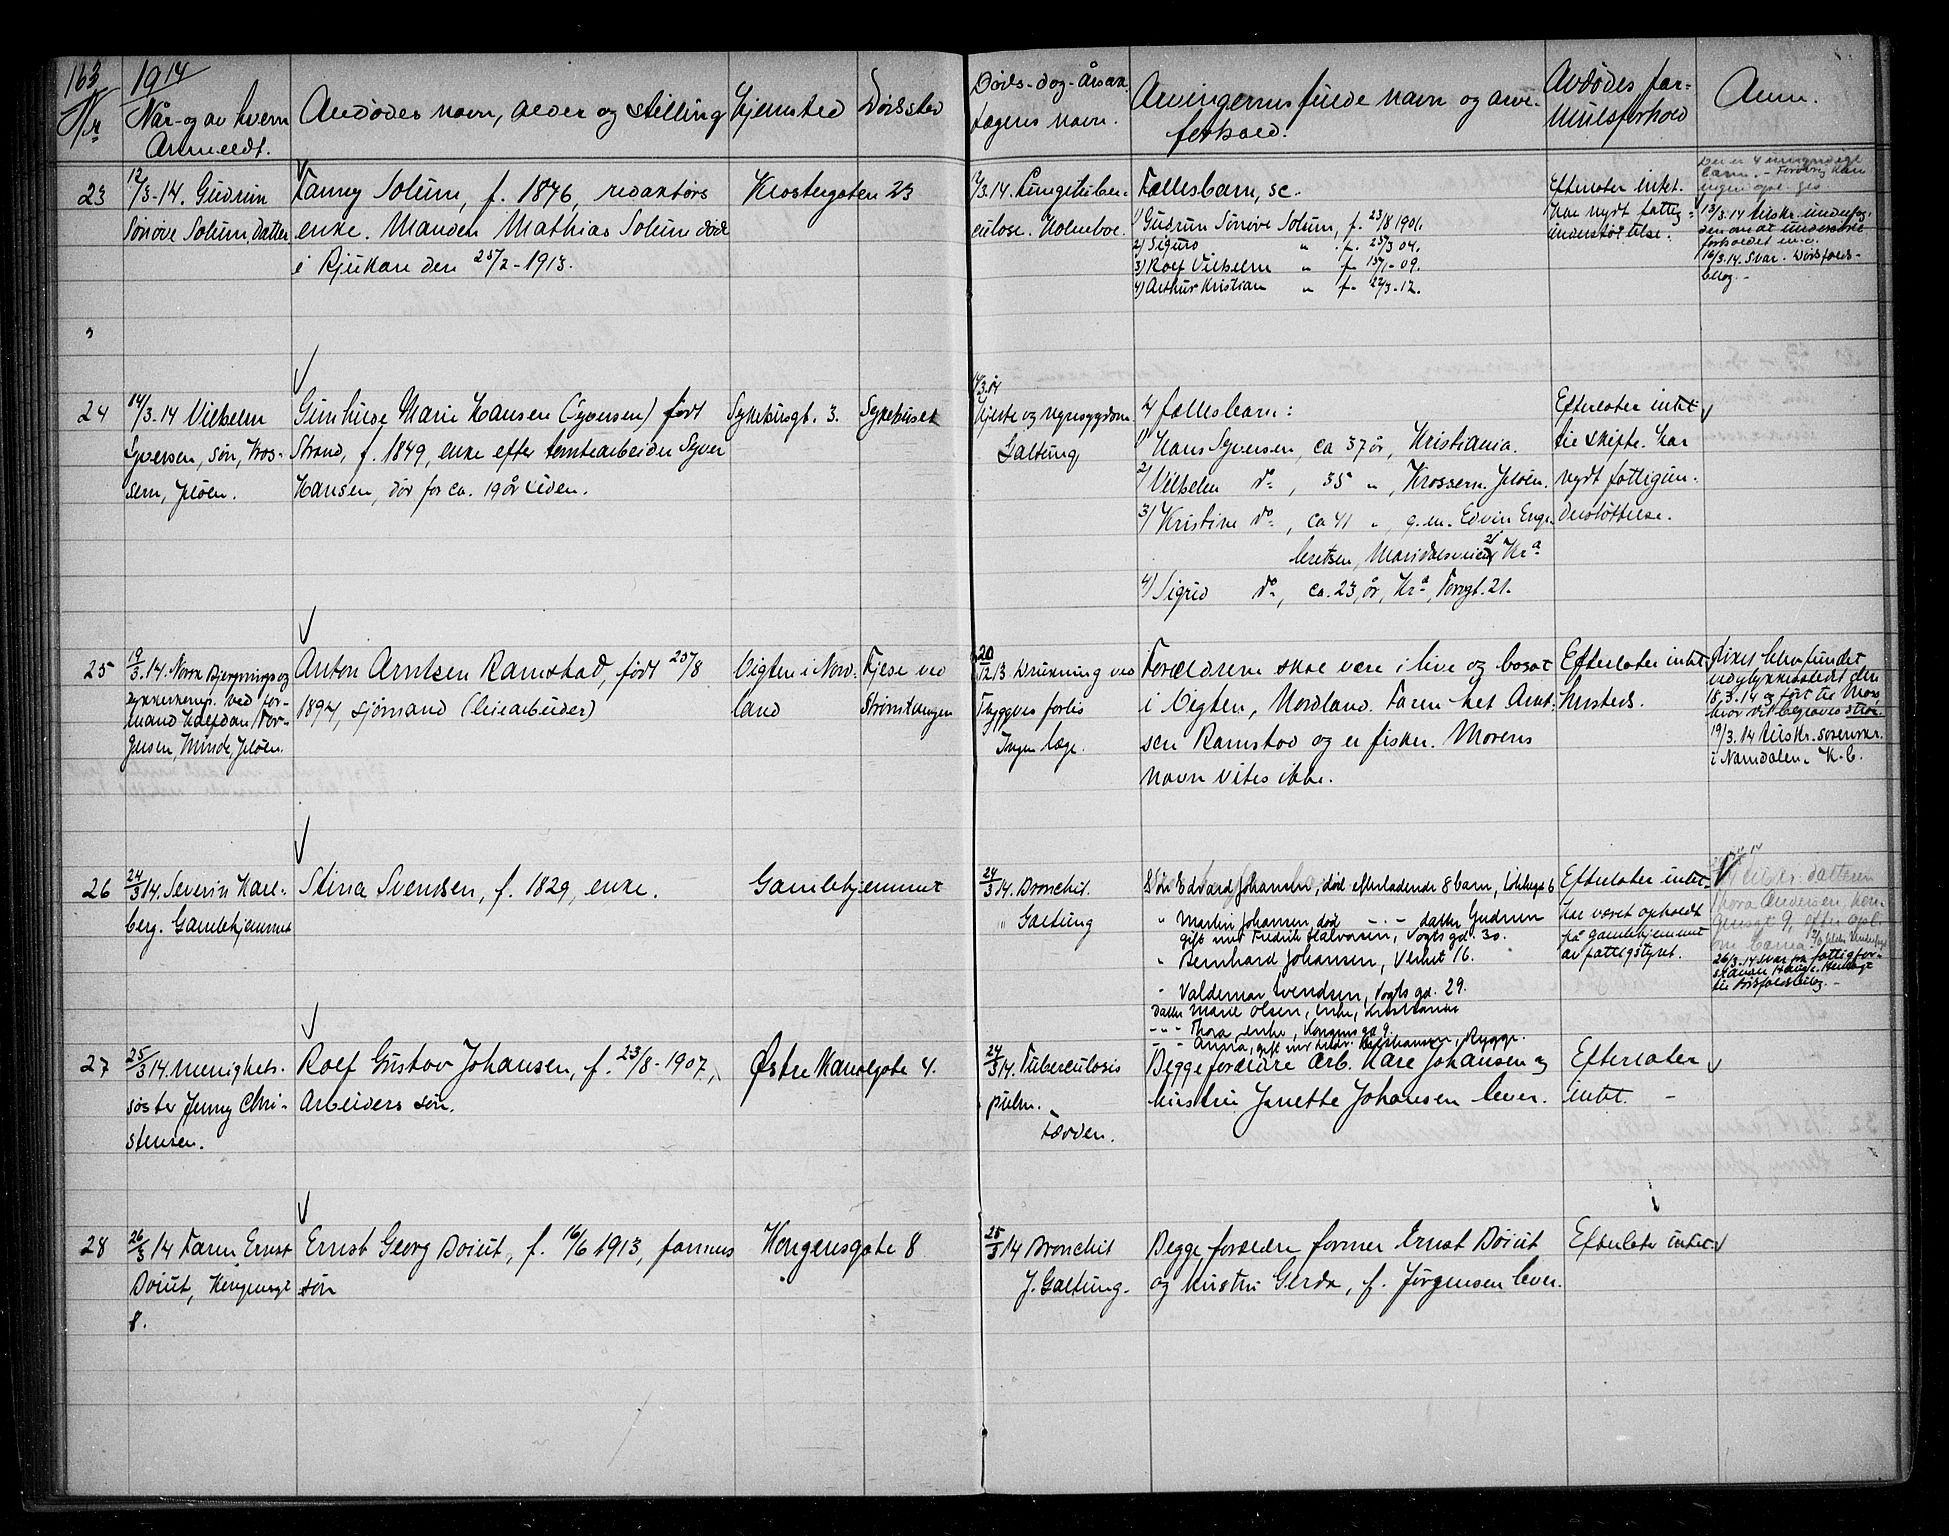 163
1914
Nr
Når- og av hvem
Anmeldt.
Avdødes navn, alder og stilling
Hjemsted
Dødssted
Døds-dag-årsak
lægens navn.
Arvingernes fulde navn og arve-
forhold.
Avdødes for-
muesforhold
Anm.
23
12/3-14. Gudrun
Synnøve Solum, datter
Fanny Solum, f. 1876, redaktørs
enke. Manden Mathias Solum døde
i Rjukan den 25/2-1913.
Klostergaten 23
/3.14. Lungetuber-
culose. Holmboe.
Fællesbarn, se.
1) Gudrun Synnøve Solum, f. 23/8 1901.
2) Sigurd " f. 23/3 04.
3) Rolf Vilhelm " f. 15/1-09.
4) Arthur Kristian " f. 22/3-12.
Efterlater intet.
Har nydt fattig-
understøttelse.
Der er 4 umyndige
barn.
13/3.14 tilskr.
den om at
forholdet m.v.
16/3.14. Svar. Dødsfalds-
bilag.-
24
14/3.14 Vilhelm
Syversen, søn, Kros-
sern, Jeløen.
Gunhilde Marie Hansen (Syversen) født
Strand, f. 1849, enke efter tomtearbeider Syver
Hansen, død for ca. 19 år siden.
Sykehusgt. 3.
Sykehuset
14/3.14
Hjerte og nyresygdom
Galtung
4 fællesbarn:
1) Hans Syversen, ca 37 år, Kristiania.
2) Vilhelm do, 35 ", Krossern. Jeløen.
3) Kristine do, ca 41 ", g.m. Edvin Enge-
bretsen, Maridalsveien 21 Kra
4) Sigrid do, ca. 23 år, Kra, Torvgt. 21.
Efterlater intet
til skifte. Har
nydt fattigun-
derstøttelse.
25
19/3.14. Norsk Bjergnings og
dykkerkomp. ved for-
mand Halfdan Tor-
gersen, Minde, Jeløen.
Anton Arntsen Ramstad, født 25/8
1894, sjømand (leiearbeider)
Vigten i Nord-
land
Fjeld ved
Strømtangen
20/12 13 Drukning ved
Tryggves forlis
Ingen læge.
Forældrene skal være i live og bosat
i Vigten, Nordland. Faren het Arnt-
sen Ramstad og er fisker. Morens
navn vites ikke.
Efterlater intet
hersteds.
Liket blev fundet
ved ulykkesstedet den
18.3.14 og ført til Moss
hvor det begraves
19/3.14 tilskr. sorenskr.
i Namdalen. K.B.
26
24/3 14. Severin Karl-
berg. Gamlehjemmet
Stina Svendsen, f. 1829, enke.
Gamlehjemmet
24/3 14. Bronchit.
Galtung
Søn Edvard Johansen, død efterladende 8 barn, 6
" Martin Johansen, død - " - datter Gudrun
gift med Fredrik Halvorsen, Vogts gd. 30.
" Bernhard Johansen, Verket 16.
" Valdemar Svendsen, Vogts gd. 29.
Datter Marie Olsen, enke,
- " - Thora, enke, Kongens gd 9.
- " - Anna, gift med Kristiansen, Rygge.
Efterlater intet
har været opholdt
på gamlehjemmet
av fattigstyret.
Tilskr. datteren
Thora Andersen, Kon-
gensgt 9, efter opl.
om barna.
26/3.14 Svar fra fattigfor-
standeren
til Dødsfaldsbilag.-
27
25/3 14. Menighets-
søster Jenny Chri-
stensen.
Rolf Gustav Johansen, f. 23/8-1907,
Arbeiders søn.
Østre Kanalgate 4.
24/3 14. Tuberculosis
pulm.
Tarden.
Begge forældre Arb. Karl Johansen og
hustru Janette Johansen lever.
Efterlater
intet. -
28
26/3 14 Faren Ernst
Doiut, Kongensgt
8.
Ernst Georg Doiut, f. 16/6 1913, formers
søn
Kongensgate 8
25/3 14 Bronchit
J. Galtung.
Begge forældre former Ernst Doiut
og hustru Gerda, f. Jørgensen lever.
Efterlater intet.